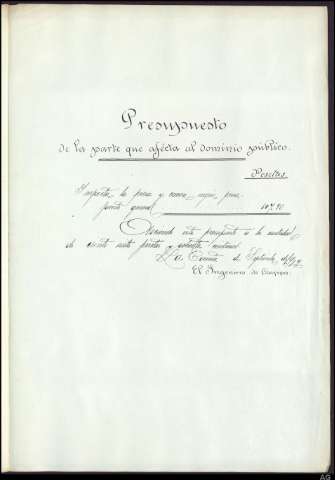 Presupuesto
de la parte que afecta al dominio público.
Pesetas
Importa la presa y según presu-
puesto general 107'90
Asciende este presupuesto a la cantidad
de ciento siete pesetas y noventa céntimos
La Coruña Septiembre
El Ingeniero de Caminos
AG